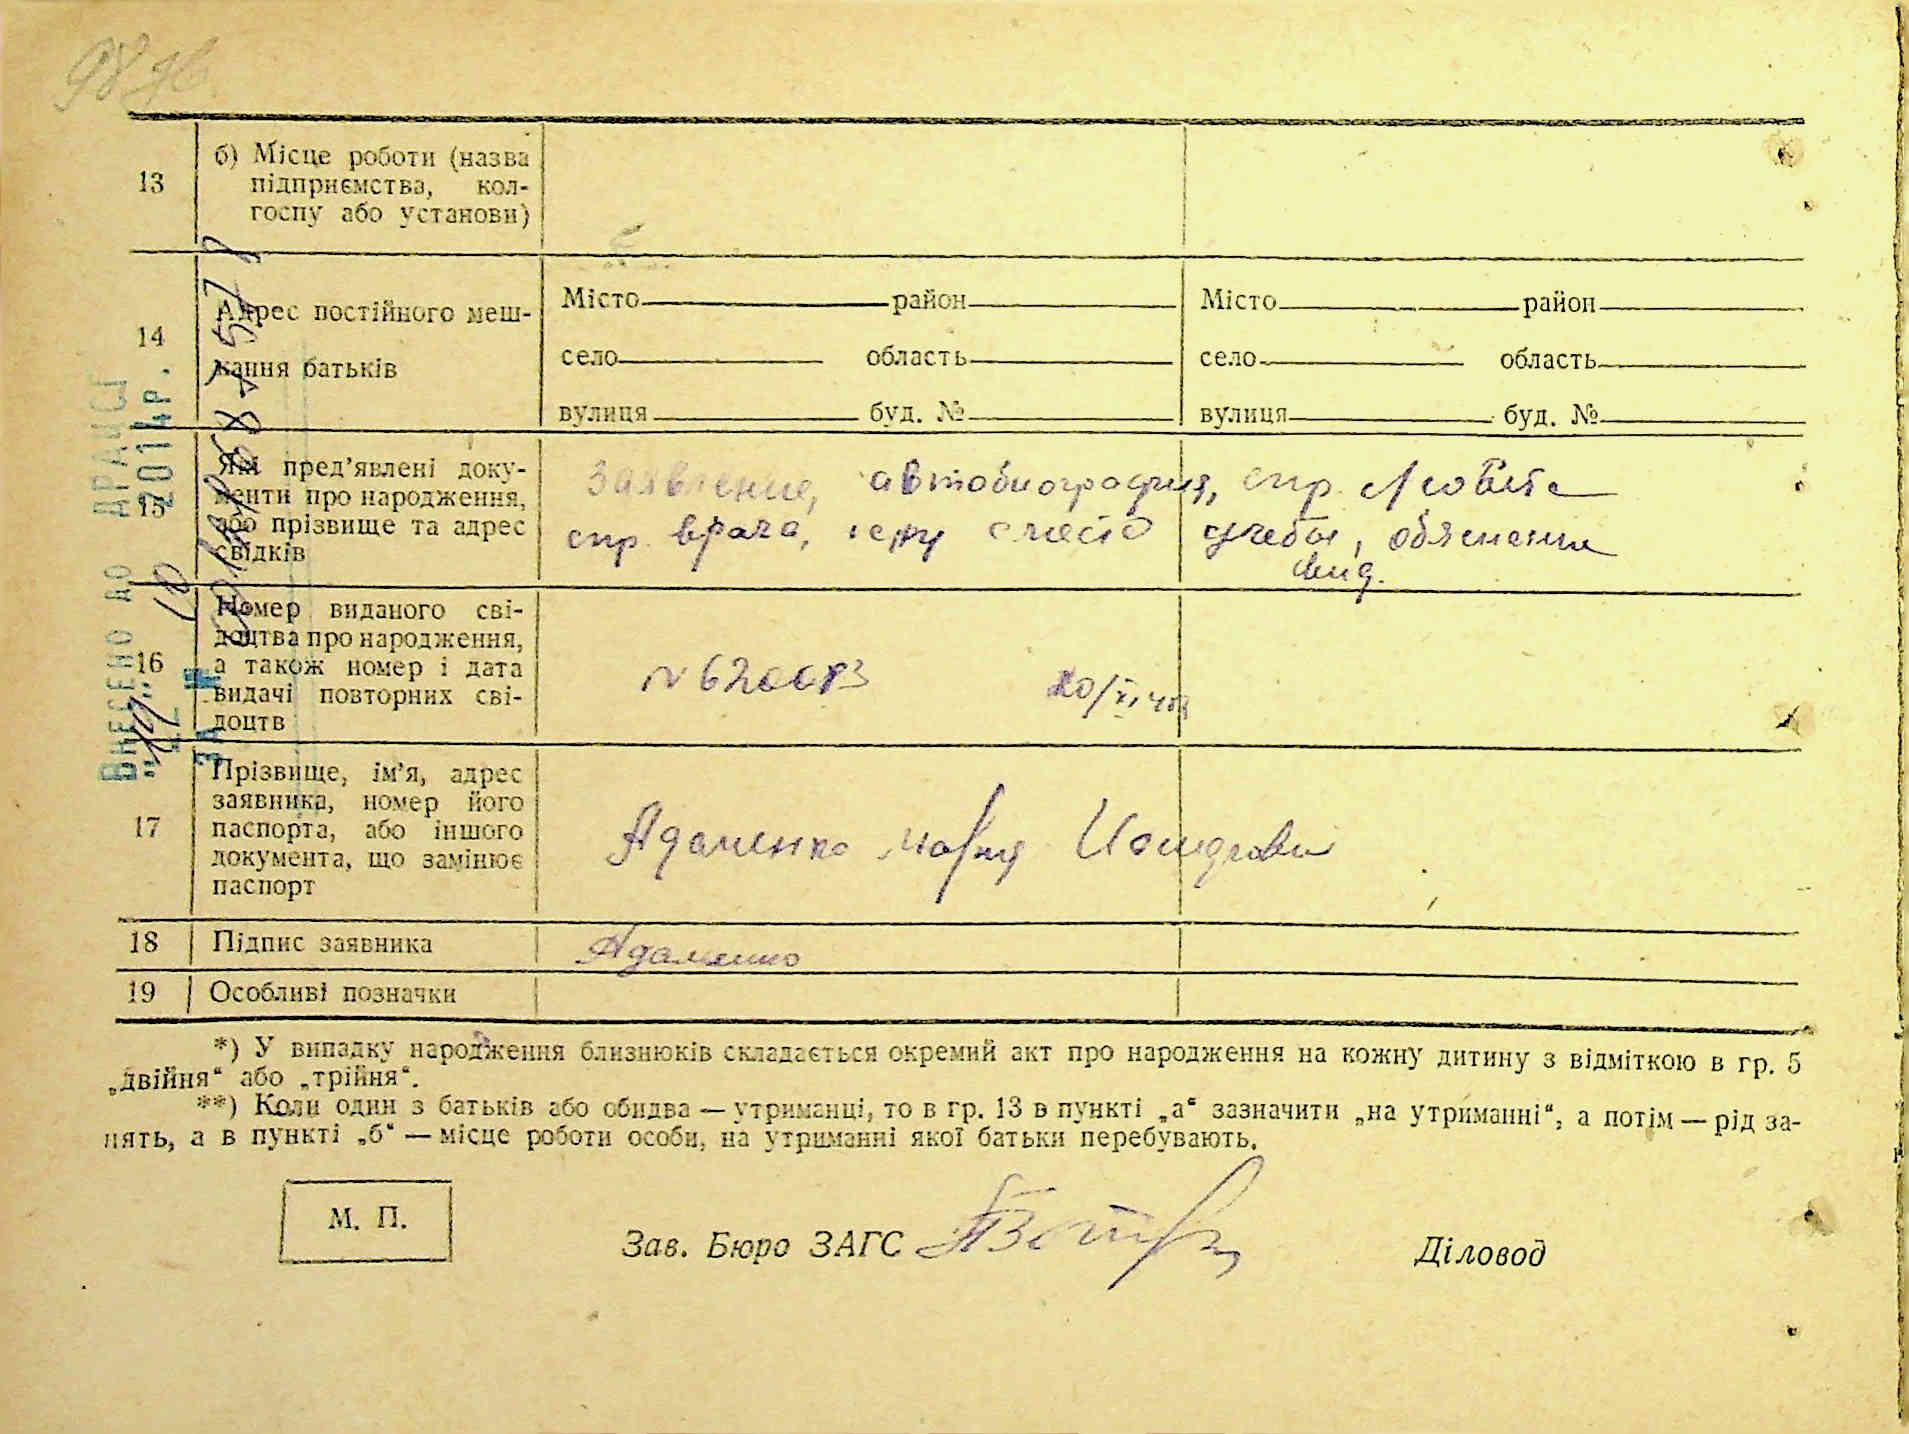 13
б) Місце роботи (назва
підприємства, кол-
госпу або установи)
14
Адрес постійного меш-
кання батьків
Місто район
село область
вулиця буд. №
Місто район
село область
вулиця буд. №
15
Які пред’явлені доку-
менти про народження,
або прізвище та адрес
свідків
Заявление, автобиография, спр.
спр. врача, с места учебы, обяснение
16
Номер виданого сві-
доцтва про народження,
а також номер і дата
видачі повторних сві-
доцтв
17
Прізвище, ім’я, адрес
заявника, номер його
паспорта, або іншого
документа, що замінює
паспорт
Адаменко Мария
18
Підпис заявника
Адаменко
19
Особливі позначки
*) У випадку народження близнюків складається окремий акт про народження на кожну дитину з відміткою в гр. 5
„двійня“ або „трійня“.
**) Коли один з батьків або обидва — утриманці, то в гр. 13 в пункті „а“ зазначити „на утриманні“, а потім — рід за-
нять, а в пункті „б“ — місце роботи особи, на утриманні якої батьки перебувають.
М. П.
Зав. Бюро ЗАГС
Діловод
ВНЕСЕНО ДО ДРАЦСГ
2014р.
ЗА №